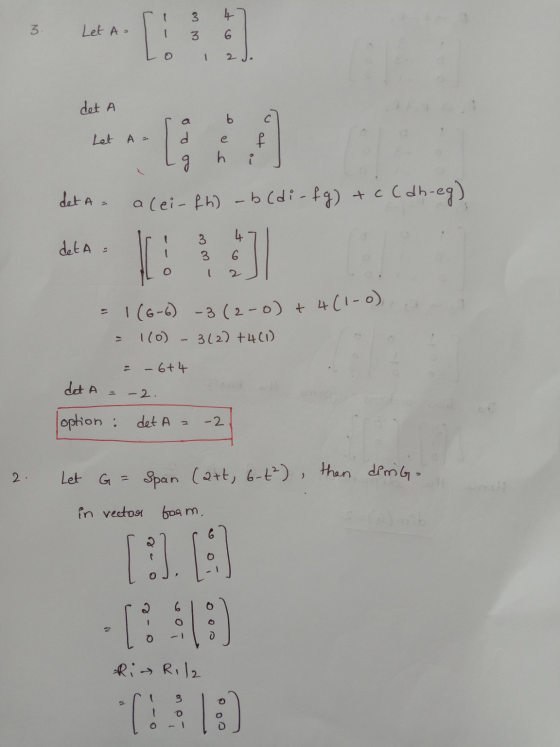 3. Let A = [ 1 3 4
1 3 6
0 1 2 ].
det A
Let A = [ a b c
d e f
g h i ]
det A = a(ei - fh) - b(di - fg) + c(dh - eg)
det A = |[ 1 3 4
1 3 6
0 1 2 ]|
= 1(6-6) - 3(2-0) + 4(1-0)
= 1(0) - 3(2) + 4(1)
= -6+4
det A = -2.
option : det A = -2
2. Let G = Span (2+t, 6-t²), then dimG =
in vector foam.
[ 2
1
0 ] , [ 6
0
-1 ]
= [ 2 6 | 0
1 0 | 0
0 -1 | 0 ]
Ri → R1/2
= [ 1 3 | 0
1 0 | 0
0 -1 | 0 ]